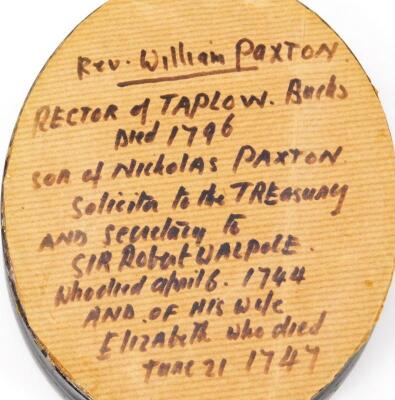 Rev. William PAXTON
RECTOR of TAPLOW. Bucks
Died 1796
son of Nicholas PAXTON
Solicitor to the TREasury
AND Secretary to
SIR Robert WALPOLE.
Who died April 6. 1744
AND OF His Wife
Elizabeth who died
June 21 1747